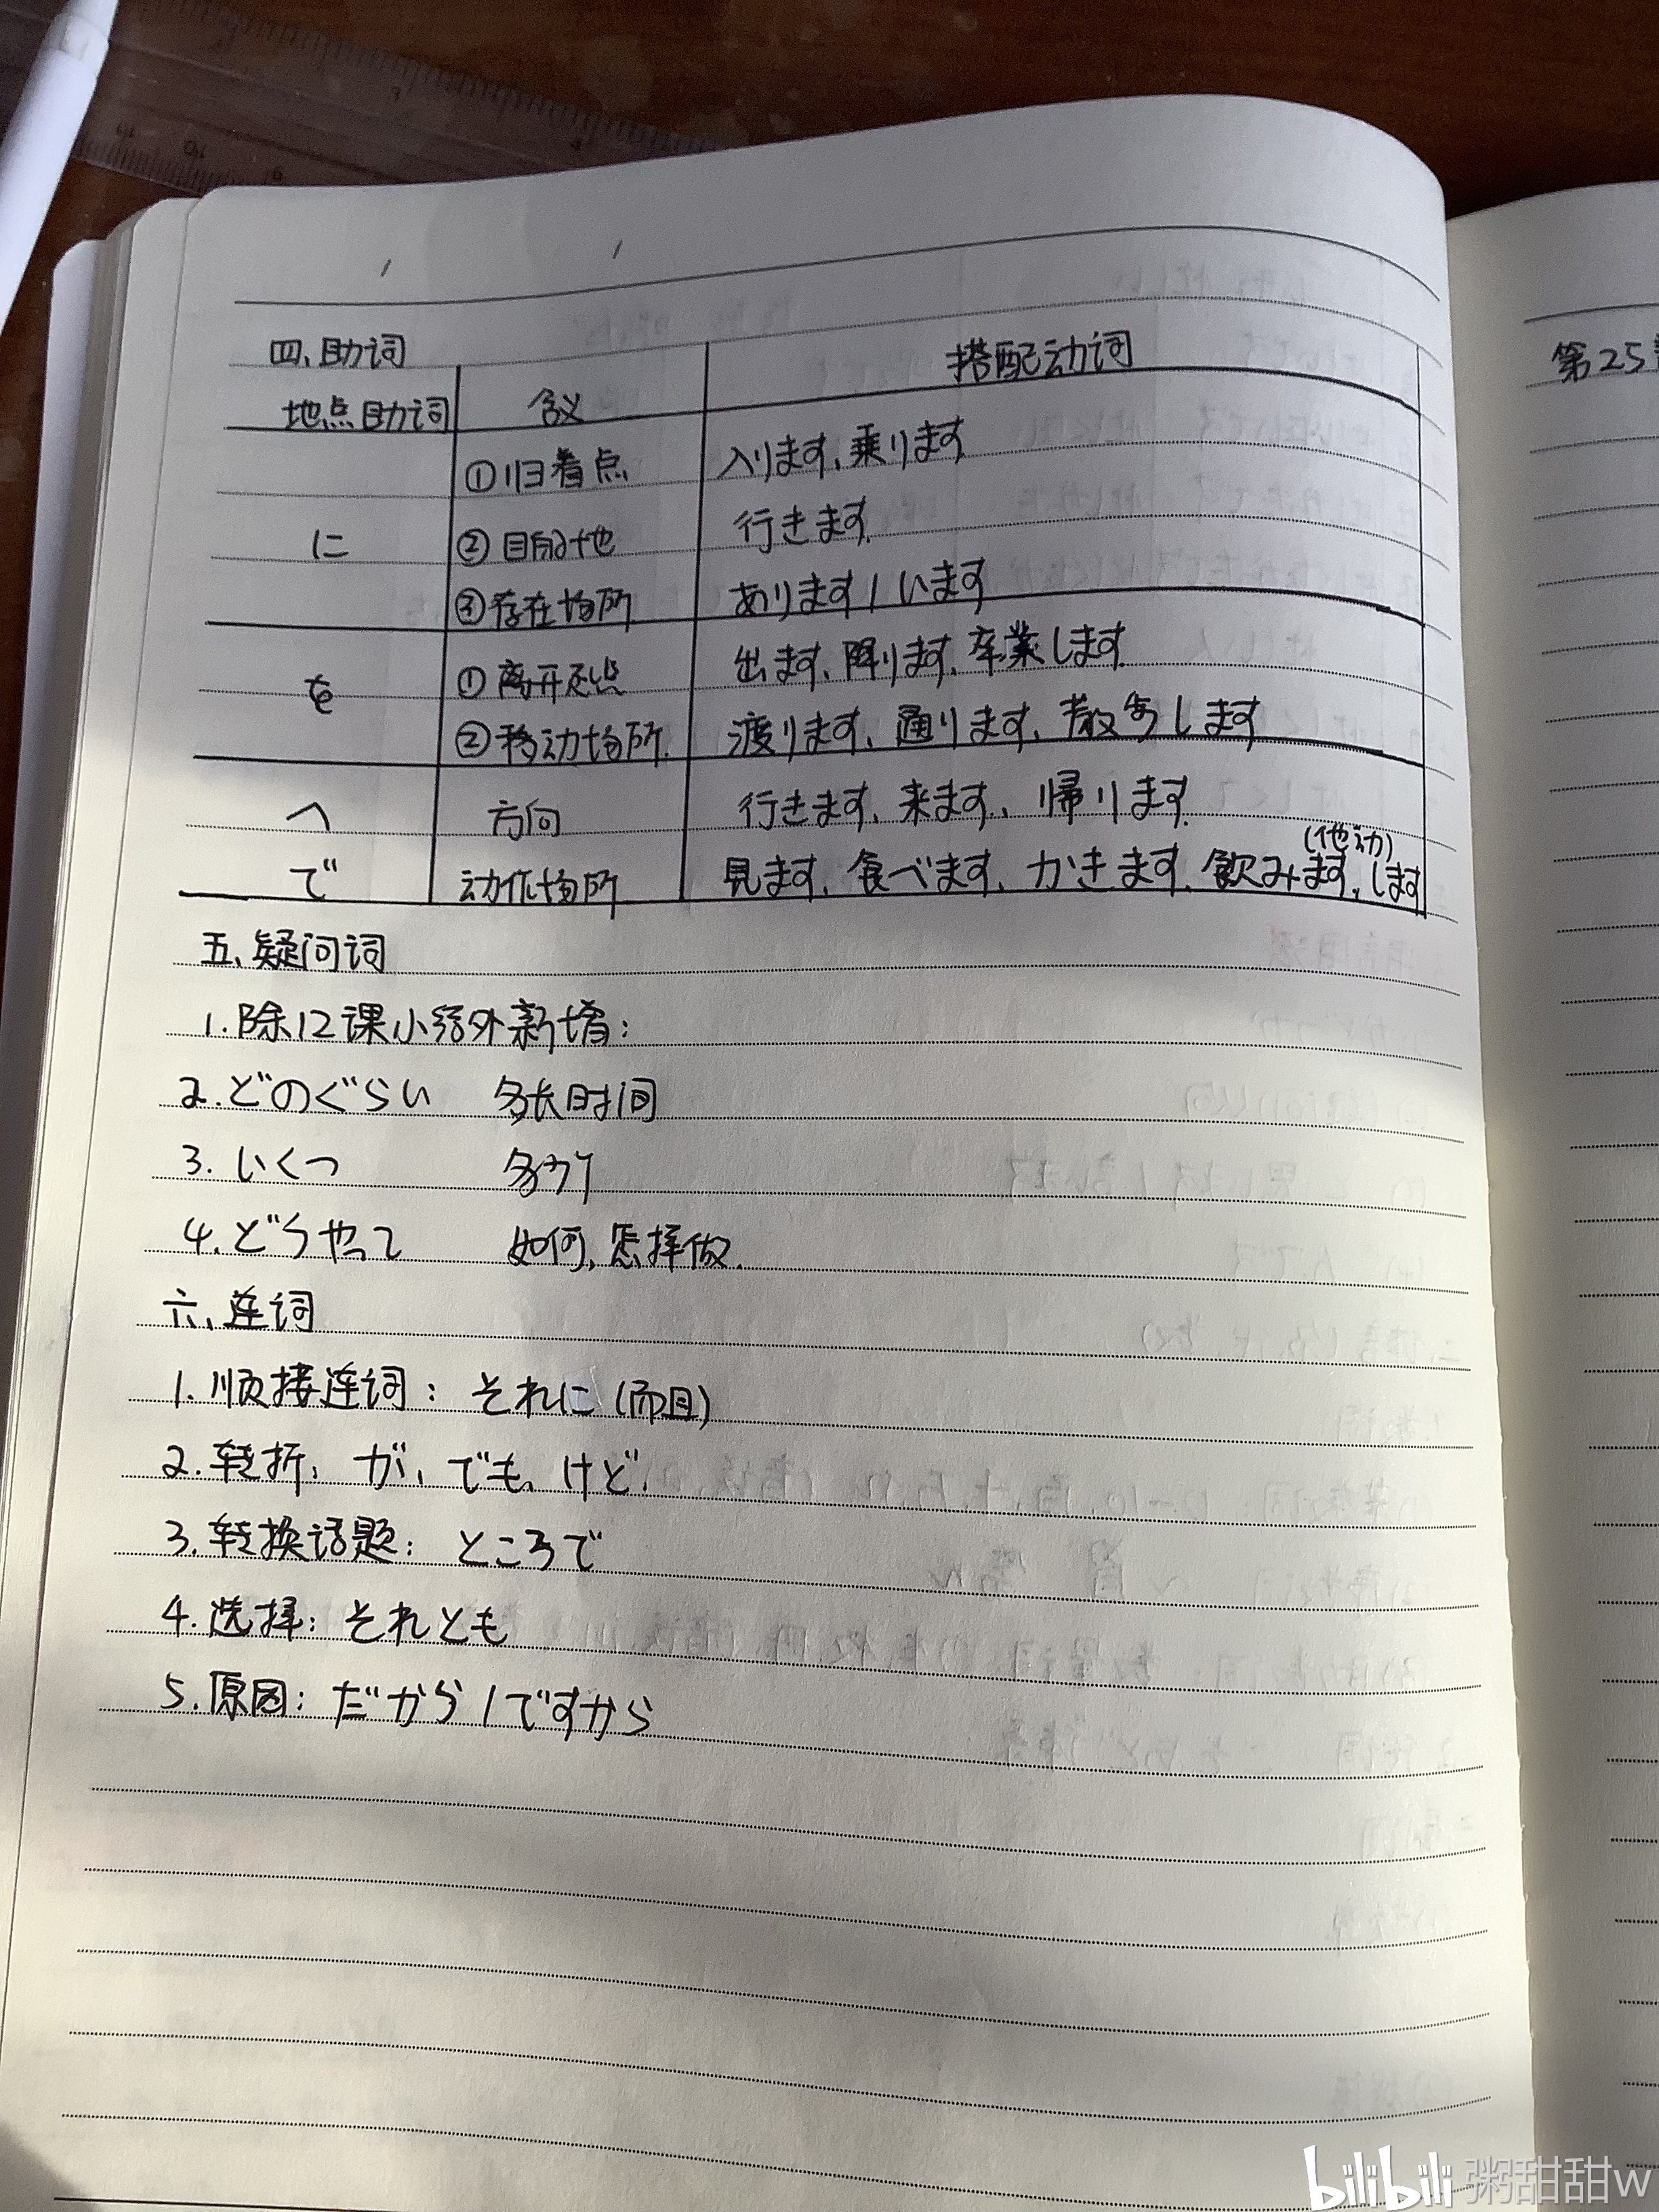 四、助词
地点助词 含义 搭配动词
①归着点 入ります、乗ります
に ②目的地 行きます
③存在场所 あります/います
を ①离开起点 出ます、降ります、卒業します
②移动场所 渡ります、通ります、散歩します
へ 方向 行きます、来ます、帰ります
(他动)
で 动作场所 見ます、食べます、かきます、飲みます、します
五、疑问词
1.除12课小结外新增:
2.どのぐらい 多长时间
3.いくつ 多少个
4.どうやって 如何,怎样做.
六、连词
1.顺接连词:それに(而且)
2.转折:が、でも、けど
3.转换话题:ところで
4.选择:それとも
5.原因:だから/ですから
第25
bilibili 粥甜甜w